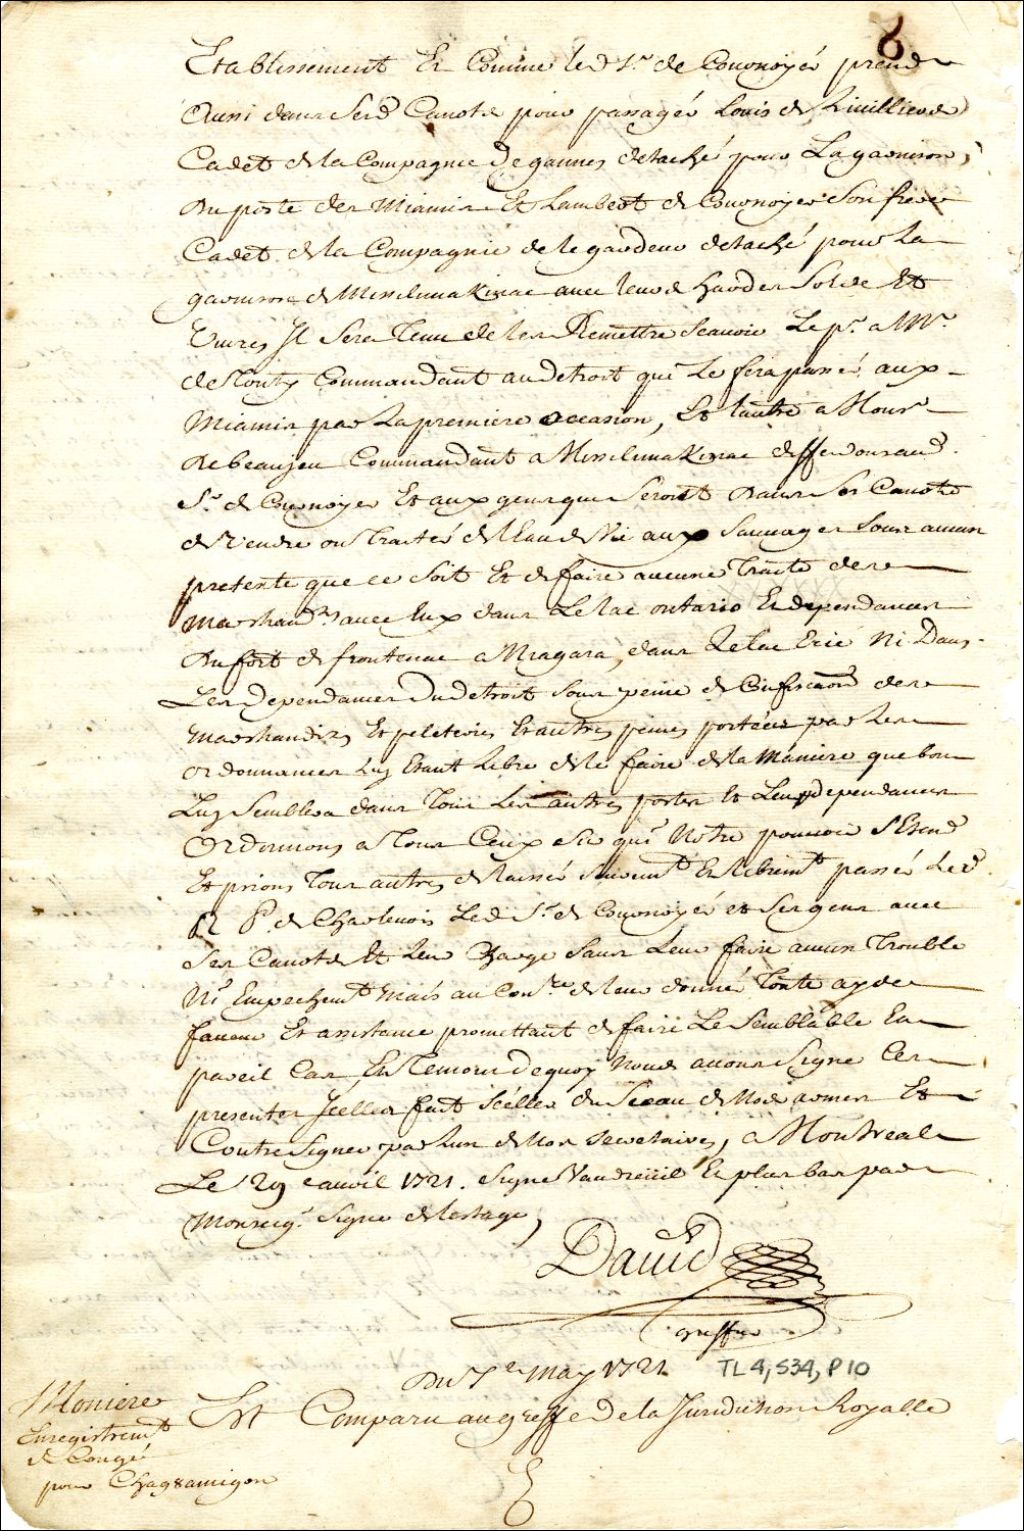 6
Etablissement Et Comme led Sr. de Cournoyé prend
Aussi dans Sesd Canots pour passagés Louis de
Cadet de la Compagnie De gannes detaché pour La garnison
Du poste des Miamis Et Lambert de Cournoyer Son frere
Cadet de la Compagnie de le gardeur detaché pour La
garnison de Missilimakinac avec leurs hardes Solde Et
Vivres Il Sera Tenu de les Remettre Scauoir Le pr. a Mr.
de Tonty Commandant au detroit qui Le fera passé aux
Miamis par La premiere occasion, Et lautre a Monsr
De beaujeu Commandant a Missilimakinac deffendons aud.
Sr. de Cournoyer Et aux gens qui Seront Dans Ses Canots
de Vendre ou Traités de lEau de Vie aux Sauuages Sous aucun
pretexte que ce Soit Et de faire aucune Traite de
Marchand.ses avec Eux dans Le lac ontario Et dependances
Du fort de frontenac a Niagara, dans Le lac Erié Ni Dans
Les dependances Du detroit Sous peine de Confiscaon des
Marchandises Et peleteries Et autres peines portées par Les
Ordonnances Luy Etant Libre de le faire de la Maniere que bon
Luy Semblera dans Tous Les autres postes Et Leurs dependances
Ordonnons a Tous Ceux sur qui Notre pouuoir S'Etend
Et prions Tous autres de laissé Seuremt Et Libremt passé Led.
R P. de Charlevois Led Sr. de Cournoyé et Ses gens avec
Ses Canots Et Leur Charge Sans Leur faire aucun Trouble
Ni Empechemt Mais au Con.re de leur donné Toute ayde
faueur Et assistance promettant de faire Le Semblable En
pareil Cas, En Temoin De quoy Nous auons Signé Ces
presentes Icelles fait Scéller du Sceau de Nos armes Et
Contre Signer par lun de Nos Secretaires, a Montreal
Le 29 auril 1721. Signé Vaudreuil Et plus bas par
Monseigr. Signé delestage,
Dauid
greffier
Du 7e May 1721 TL4, S34, P10
Est Comparu au greffe De la Juridiction Royalle
Moniere
Enregistremt
de Congé
pour Chag8amigon